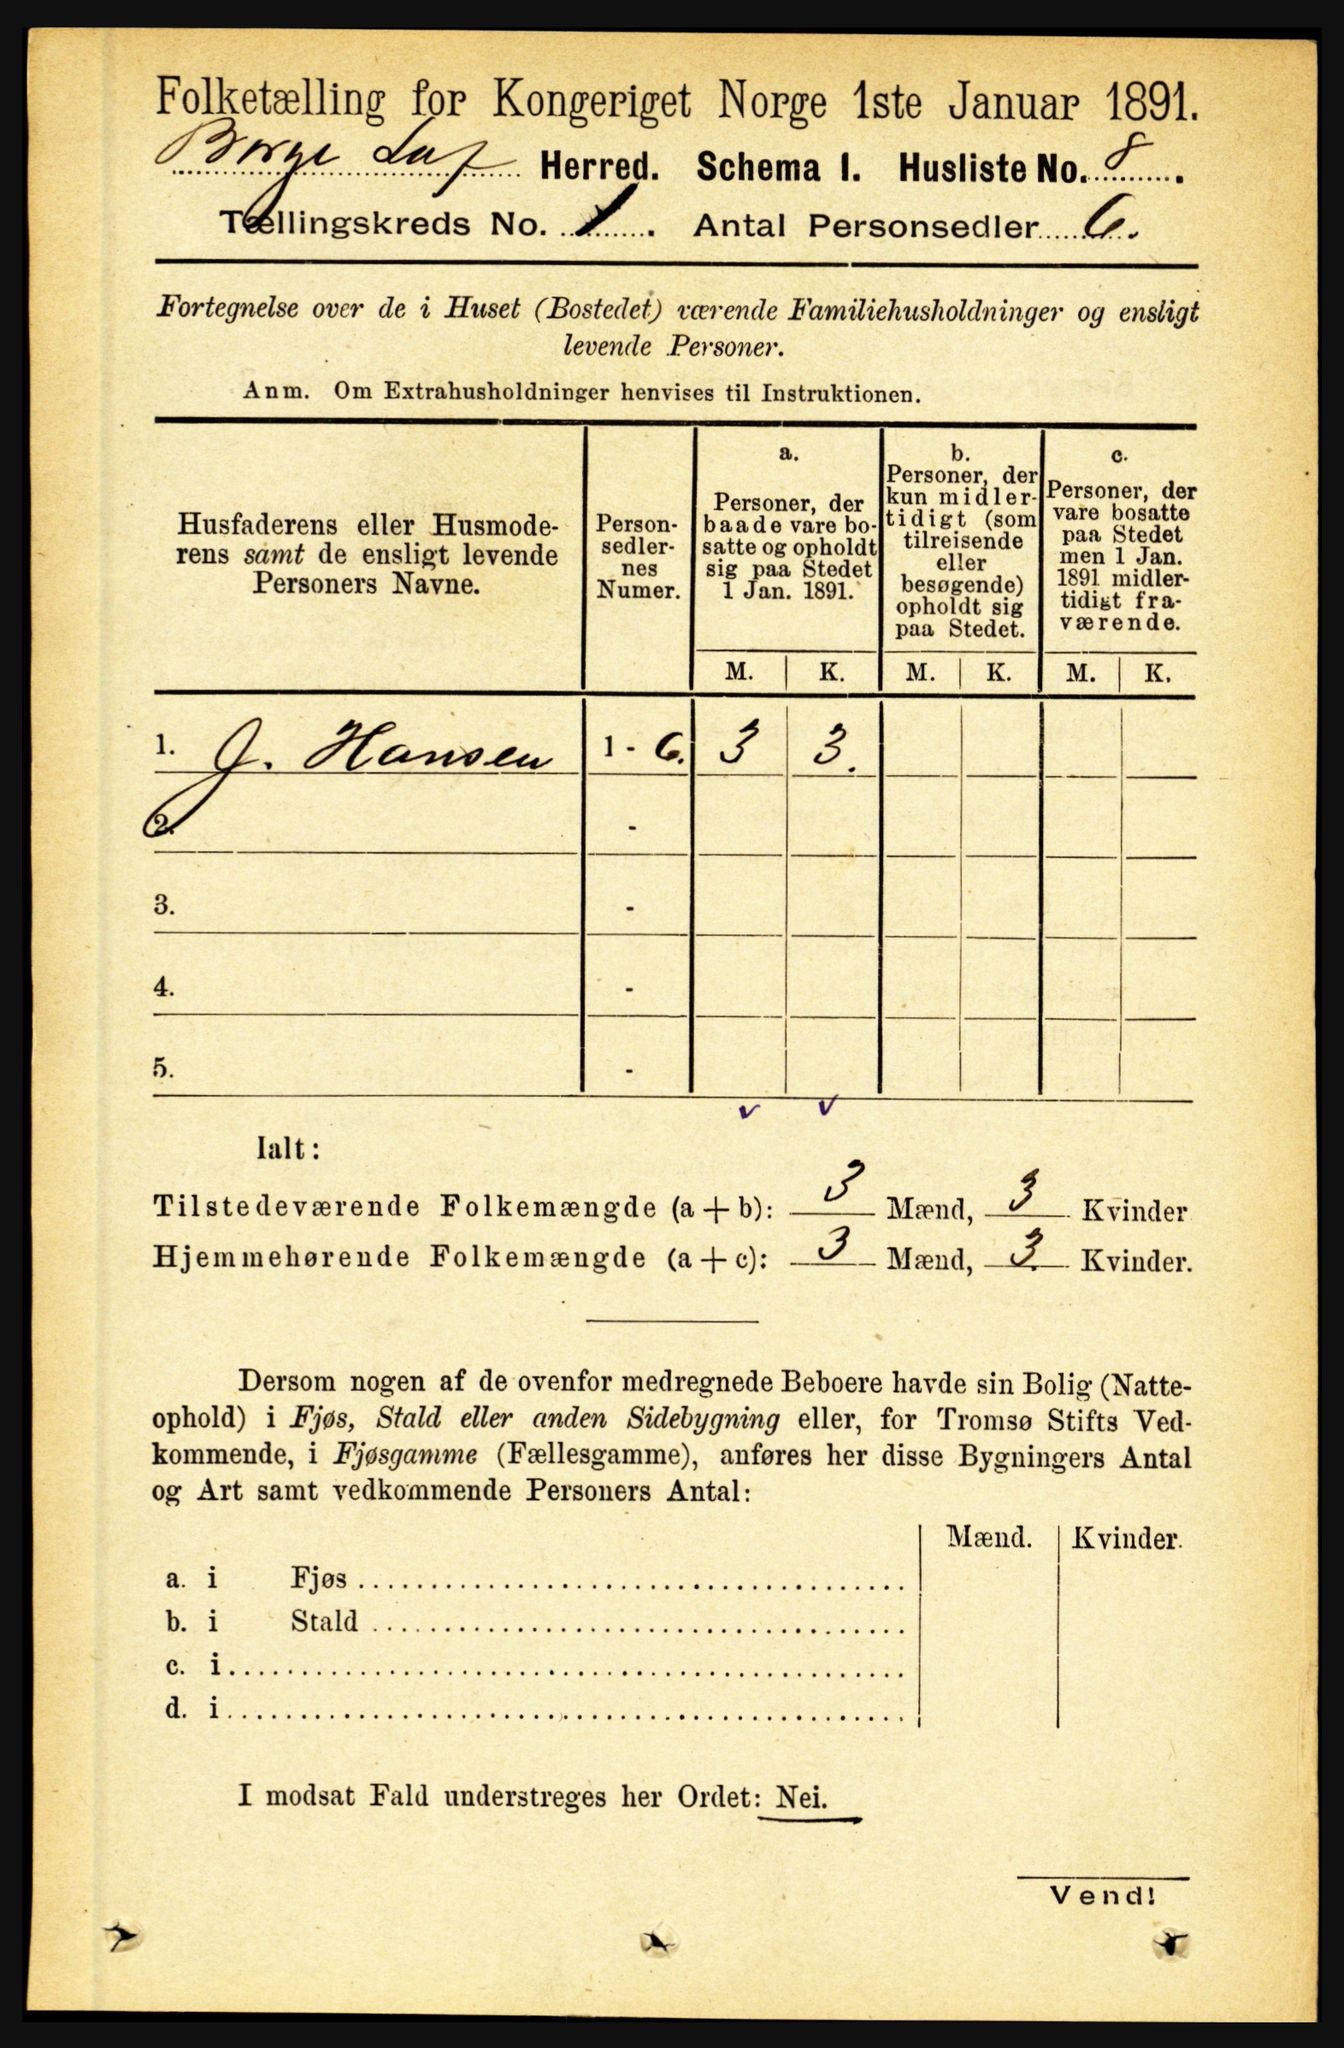 Folketælling for Kongeriget Norge 1ste Januar 1891.
Borge Lof Herred. Schema I. Husliste No. 8.
Tællingskreds No. 1. Antal Personsedler 6.
Fortegnelse over de i Huset (Bostedet) værende Familiehusholdninger og ensligt
levende Personer.
Anm. Om Extrahusholdninger henvises til Instruktionen.
Husfaderens eller Husmode-
rens samt de ensligt levende
Personers Navne.
Person-
sedler-
nes
Numer.
a.
Personer, der
baade vare bo-
satte og opholdt
sig paa Stedet
1 Jan. 1891.
b.
Personer, der
kun midler-
tidigt (som
tilreisende
eller
besøgende)
opholdt sig
paa Stedet.
c.
Personer, der
vare bosatte
paa Stedet
men 1 Jan.
1891 midler-
tidigt fra-
værende.
M. K. M. K. M. K.
1. J. Hansen 1 - 6. 3 3.
2. -
3. -
4. -
5. -
Ialt:
Tilstedeværende Folkemængde (a + b): 3 Mænd, 3 Kvinder
Hjemmehørende Folkemængde (a + c): 3 Mænd, 3. Kvinder.
Dersom nogen af de ovenfor medregnede Beboere havde sin Bolig (Natte-
ophold) i Fjøs, Stald eller anden Sidebygning eller, for Tromsø Stifts Ved-
kommende, i Fjøsgamme (Fællesgamme), anføres her disse Bygningers Antal
og Art samt vedkommende Personers Antal:
Mænd. Kvinder.
a. i Fjøs
b. i Stald
c. i
d. i
I modsat Fald understreges her Ordet: Nei.
Vend!